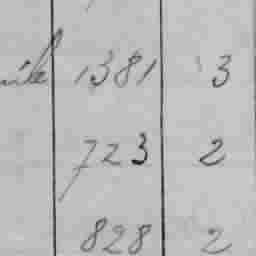 1381 3
723 2
828 2